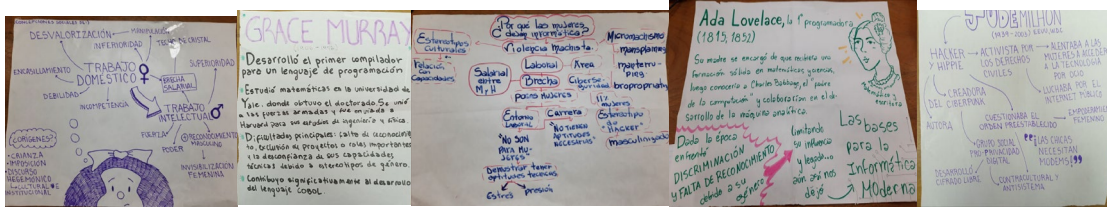 DESVALORIZACIÓN
INFERIORIDAD
TECHO DE CRISTAL
ENCASILLAMIENTO
TRABAJO
DOMÉSTICO
SUPERIORIDAD
BRECHA
SALARIAL
DEBILIDAD
INCOMPETENCIA
TRABAJO
INTELECTUAL
FUERZA
PODER
RECONOCIMIENTO
MASCULINO
INVISIBILIZACIÓN
FEMENINA
¿ORÍGENES?
• CRIANZA
• IMPOSICIÓN
• DISCURSO
HEGEMÓNICO
CULTURAL E
INSTITUCIONAL
GRACE MURRAY
Desarrolló el primer compilador
para un lenguaje de programación
Estudió matemáticas en la universidad de
Yale, donde obtuvo el doctorado. Se unió
a las fuerzas armadas y fue enviada a
Harvard para sus estudios de ingeniería y física
Dificultades principales: falta de reconocimien
to, exclusión de proyectos o roles importantes
y la desconfianza de sus capacidades
técnicas debido a estereotipos de género.
Contribuyó significativamente al desarrollo
del lenguaje COBOL
¿Por qué las mujeres
desinformática?
Estereotipos
culturales
Violencia machista.
Micromachismo
mansplaining
Relación
con
Capacidades
Salarial
entre
M y H
Laboral
Área
Brecha
Ciberse-
guridad
manterru-
ping
bropropriating
pocas mujeres
11%
mujeres
Entorno
laboral
Carrera
Estereotipo
"NO SON
PARA MU-
JERES"
"NO TIENEN
APTITUDES
NECESARIAS"
"HACKER"
masculinizado
Demostrar tener
aptitudes técnicas
Estrés
presión
Ada Lovelace, la 1ª programadora
(1815, 1852)
Su madre se encargó de que recibiera una
formación sólida en matemáticas y ciencias,
luego conocería a Charles Babbage, el "padre
de la computación" y colaborarían en el de-
sarrollo de la máquina analítica.
Matemática y
escritora
Dada la época
enfrentó
DISCRIMINACIÓN
Y FALTA DE RECONOCIMIENTO
debido a su
género
limitando
su influencia
y legado...
aún así nos
dejó
Las
bases
para la
Informática
Moderna
JUDE MILHON
(1939 - 2003) EEUU, WDC
HACKER
Y HIPPIE
ACTIVISTA POR
LOS DERECHOS
CIVILES
ALENTABA A LAS
MUJERES A ACCEDER
A LA TECNOLOGÍA
POR OCIO
CREADORA
DEL CIBERPUNK
LUCHABA POR EL
INTERNET PÚBLICO
AUTORA
CUESTIONABA EL
ORDEN PREESTABLECIDO
EMPODERAMIENTO
FEMENINO
GRUPO SOCIAL
PRO PRIVACIDAD
DIGITAL
"LAS CHICAS
NECESITAN
MODEMS"
DESARROLLO
CIFRADO LIBRE
CONTRACULTURAL Y
ANTISISTEMA